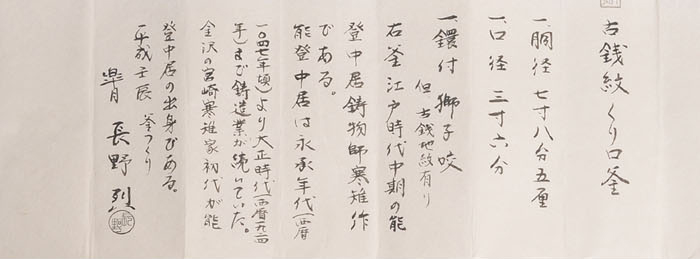 古銭紋くり口釜
一、胴径 七寸八分五厘
一、口径 三寸六分
一、鐶付 獅子咬
但 古銭地紋有り
右釜江戸時代中期の能
登中居鋳物師寒雉作
である。
能登中居は永承年代(西暦
一〇四七年頃)より大正時代(西暦一九二四
年)まで鋳造業が続いていた。
金沢の宮崎寒雉家初代が能
登中居の出身である。
平成壬辰 釜つくり
皆月 長野 烈